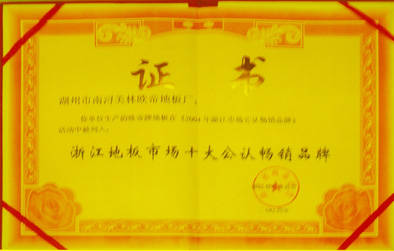 证 书
湖州市南浔美林欧帝地板厂:
你单位生产的欧帝牌地板在《2004年浙江市场公认畅销品牌》
活动中被列入:
浙江地板市场十大公认畅销品牌